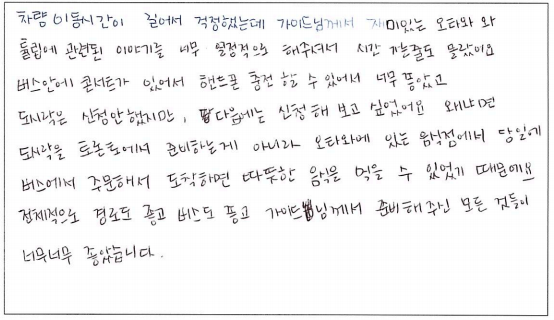 차량이동시간이 길어서 걱정했는데 가이드님께서 재미있는 오타와 와
튤립에 관련된 이야기를 너무 열정적으로 해주셔서 시간 가는줄도 몰랐어요
버스안에 콘센트가 있어서 핸드폰 충전 할 수 있어서 너무 좋았고
도시락은 신청안했지만, 다음에는 신청해 보고 싶었어요 왜냐면
도시락을 토론토에서 준비하는게 아니라 오타와에 있는 음식점에서 당일에
버스에서 주문해서 도착하면 따뜻한 음식을 먹을 수 있었기 때문에요
전체적으로 경로도 좋고 버스도 좋고 가이드님께서 준비해주신 모든 것들이
너무너무 좋았습니다.